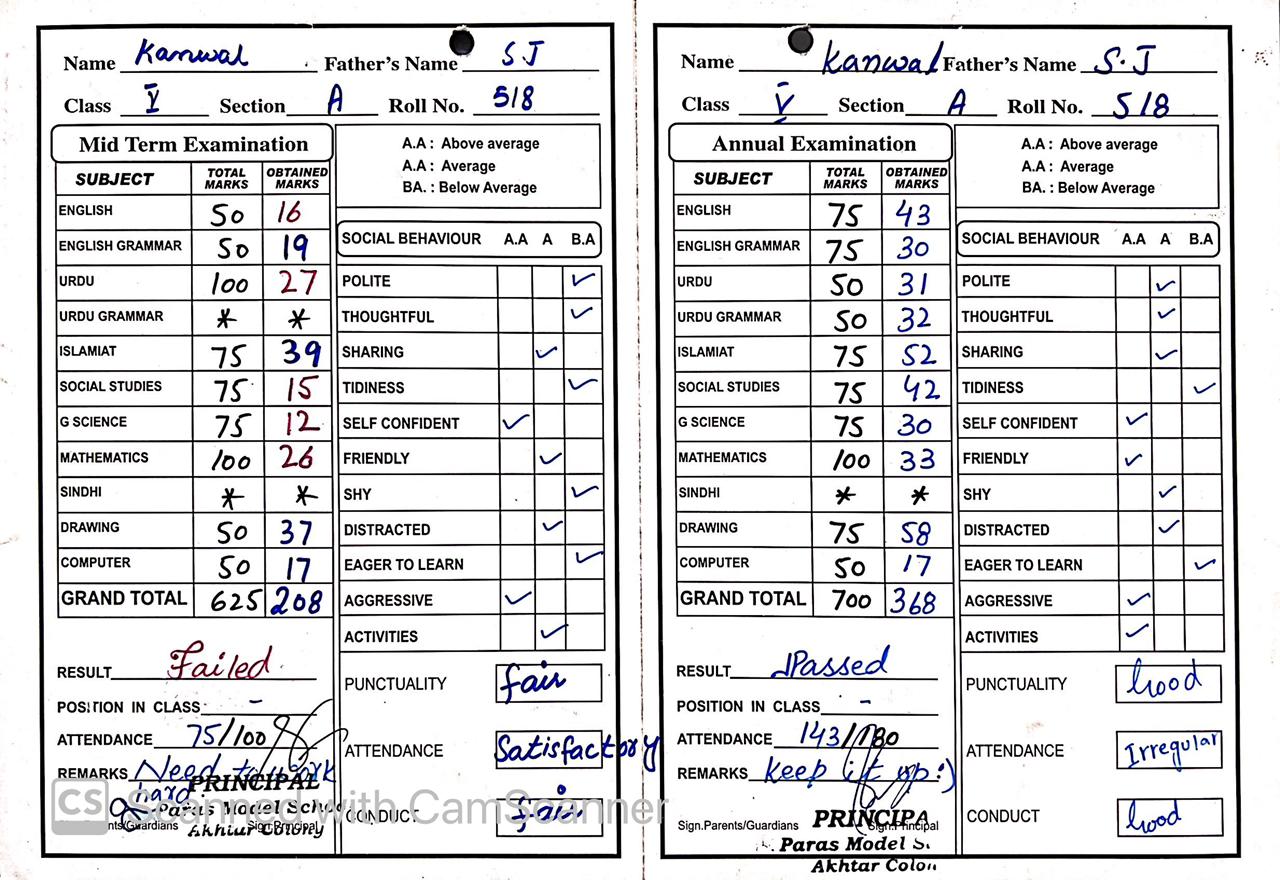 Name Kanwal Father's Name S J
Class V Section A Roll No. 518
Mid Term Examination
SUBJECT TOTAL MARKS OBTAINED MARKS
ENGLISH 50 16
ENGLISH GRAMMAR 50 19
URDU 100 27
URDU GRAMMAR * *
ISLAMIAT 75 39
SOCIAL STUDIES 75 15
G SCIENCE 75 12
MATHEMATICS 100 26
SINDHI * *
DRAWING 50 37
COMPUTER 50 17
GRAND TOTAL 625 208
RESULT Failed
POSITION IN CLASS -
ATTENDANCE 75/100
REMARKS Need to work
hard
PRINCIPAL
Paras Model
Akhtar Colony
Sign.Principal
A.A : Above average
A.A : Average
BA. : Below Average
SOCIAL BEHAVIOUR A.A A B.A
POLITE ✓
THOUGHTFUL ✓
SHARING ✓
TIDINESS ✓
SELF CONFIDENT ✓
FRIENDLY ✓
SHY ✓
DISTRACTED ✓
EAGER TO LEARN ✓
AGGRESSIVE ✓
ACTIVITIES ✓
PUNCTUALITY fair
ATTENDANCE Satisfactory
CONDUCT fair
CS Scanned with CamScanner
Name Kanwal Father's Name S.J
Class V Section A Roll No. 518
Annual Examination
SUBJECT TOTAL MARKS OBTAINED MARKS
ENGLISH 75 43
ENGLISH GRAMMAR 75 30
URDU 50 31
URDU GRAMMAR 50 32
ISLAMIAT 75 52
SOCIAL STUDIES 75 42
G SCIENCE 75 30
MATHEMATICS 100 33
SINDHI * *
DRAWING 75 58
COMPUTER 50 17
GRAND TOTAL 700 368
RESULT Passed
POSITION IN CLASS -
ATTENDANCE 143/180
REMARKS Keep it up :)
Sign.Parents/Guardians Sign.Principal
PRINCIPA
Paras Model
Akhtar Colon
A.A : Above average
A.A : Average
BA. : Below Average
SOCIAL BEHAVIOUR A.A A B.A
POLITE ✓
THOUGHTFUL ✓
SHARING ✓
TIDINESS ✓
SELF CONFIDENT ✓
FRIENDLY ✓
SHY ✓
DISTRACTED ✓
EAGER TO LEARN ✓
AGGRESSIVE ✓
ACTIVITIES ✓
PUNCTUALITY Good
ATTENDANCE Irregular
CONDUCT Good